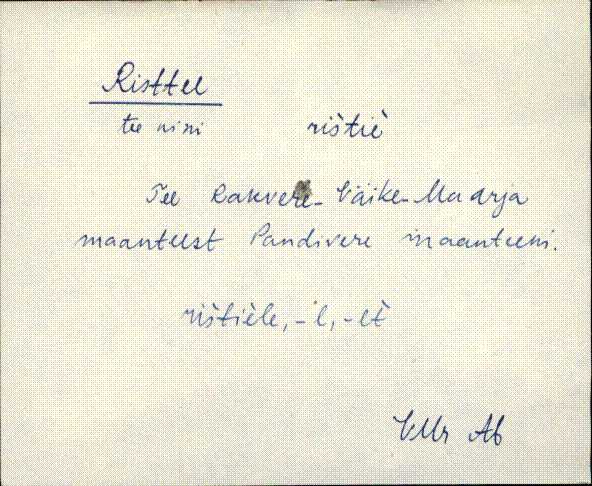 Risttee
tee nimi rištiè
Tee Rakvere-Väike-Maarja
maanteest Pandivere maanteeni.
rištièle, -l, -lt
VMr Ab